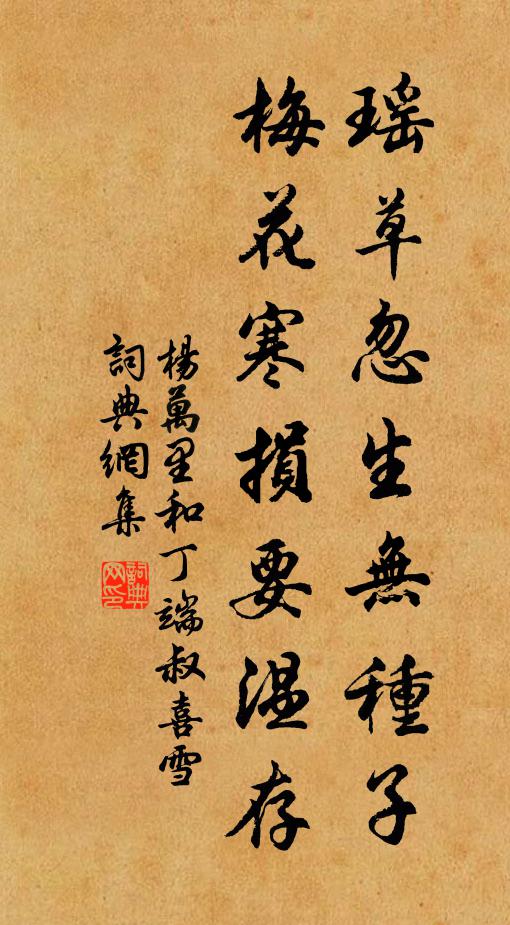 瑶草忽生無種子
梅花寒損要温存
楊萬里和丁端叔喜雪
詞典網集
詞典网印